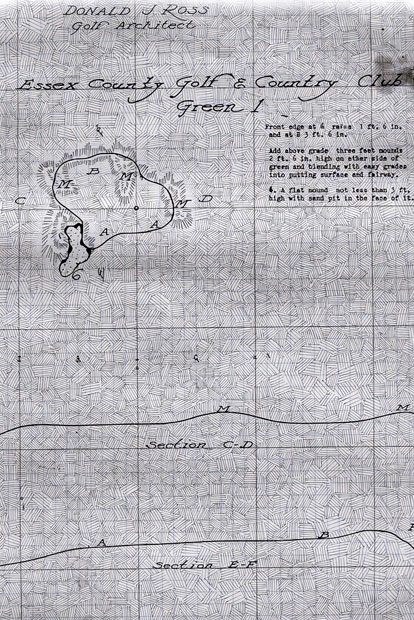 DONALD J. ROSS
Golf Architect
Essex County Golf & Country Club
Green 1
Front edge at A raises 1 ft. 6 in.
and at B 3 ft. 6 in.
Add above grade three feet mounds
2 ft. 6 in. high on either side of
green and blending with easy grades
into putting surface and fairway.
6. A flat mound not less than 3 ft.
high with sand pit in the face of it.
B
M
M
C
M
D
A
A
6
M
M
Section C-D
A
B
Section E-F